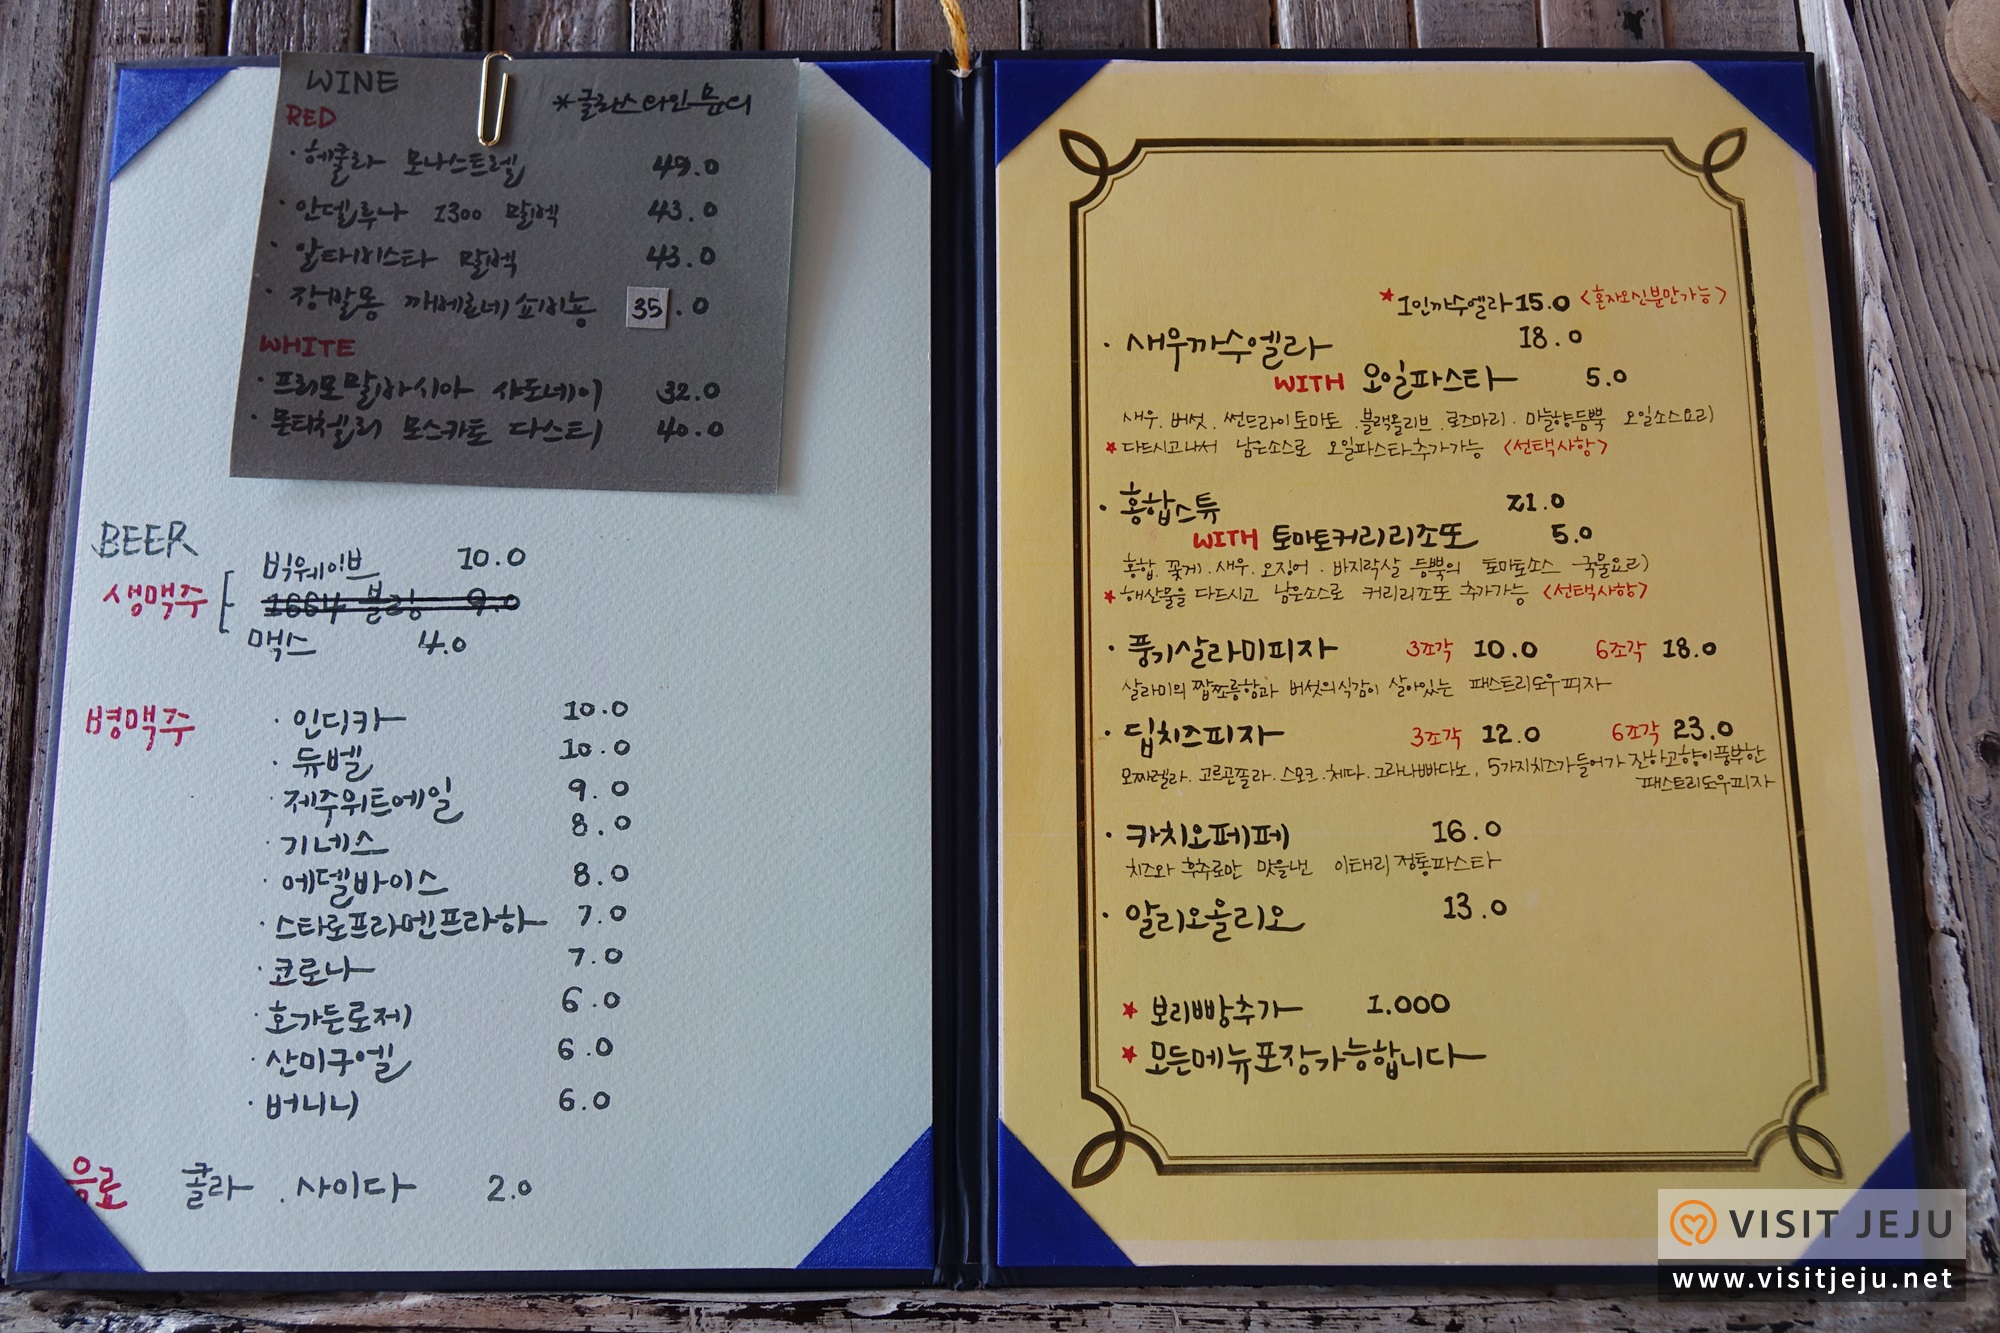 WINE
*글라스와인 문의
RED
· 헤쿨라 모나스트렐 49.0
· 안델루나 1300 말벡 43.0
· 알타비스타 말벡 43.0
· 장발몽 까베르네쇼비뇽 35.0
WHITE
· 프리모말바시아 샤도네이 32.0
· 몬티첼리 모스카토 다스티 40.0
BEER
생맥주
빅웨이브 10.0
1664 블랑 9.0
맥스 4.0
병맥주
· 인디카 10.0
· 듀벨 10.0
· 제주위트에일 9.0
· 기네스 8.0
· 에델바이스 8.0
· 스타로프라멘프라하 7.0
· 코로나 7.0
· 호가든로제 6.0
· 산미구엘 6.0
· 버니니 6.0
음료 콜라 . 사이다 2.0
★1인까수엘라 15.0 <혼자오신분만가능>
· 새우까수엘라 18.0
WITH 오일파스타 5.0
새우. 버섯. 썬드라이토마토. 블랙올리브. 로즈마리. 마늘향듬뿍 오일소스요리)
★다드시고나서 남은소스로 오일파스타추가가능 <선택사항>
· 홍합스튜 21.0
WITH 토마토커리리조또 5.0
홍합. 꽃게. 새우. 오징어. 바지락살 듬뿍의 토마토소스 국물요리)
★해산물을 다드시고 남은소스로 커리리조또 추가가능 <선택사항>
· 풍기살라미피자 3조각 10.0 6조각 18.0
살라미의 짭쪼롬함과 버섯의식감이 살아있는 패스트리도우피자
· 딥치즈피자 3조각 12.0 6조각 23.0
모짜렐라. 고르곤졸라. 스모크. 체다. 그라나빠다노, 5가지치즈가들어가 진하고향이풍부한
패스트리도우피자
· 카치오페페 16.0
치즈와 후추로만 맛을낸 이태리정통파스타
· 알리오올리오 13.0
★ 보리빵추가 1.000
★ 모든메뉴포장가능합니다
VISIT JEJU
www.visitjeju.net